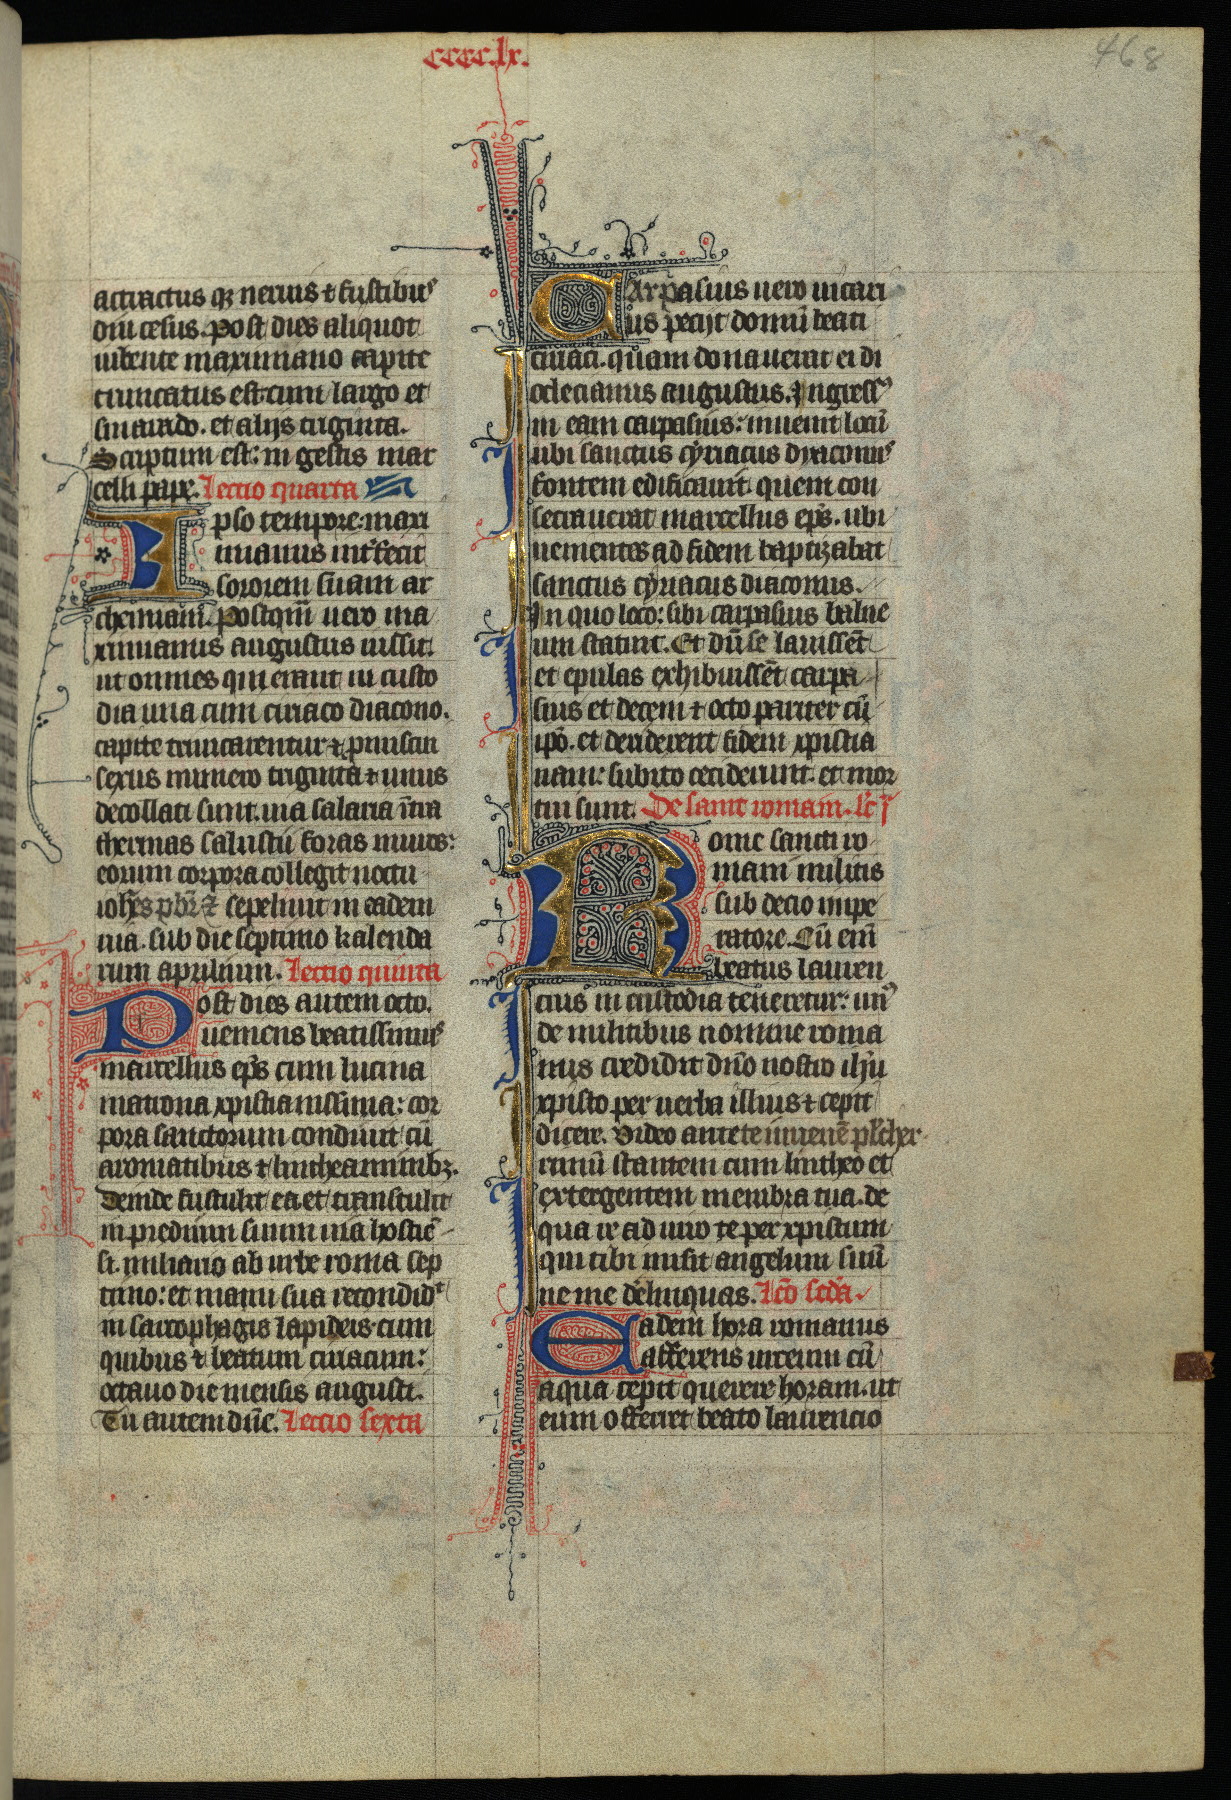 cccc.lx.
468
attractus qꝫ neruis ⁊ fustibus
diu cesus. Post dies aliquot
iubente maximiano capite
truncatus est. cum largo et
smarado. et alijs triginta.
Scriptum est: in gestis mar
celli pape. Lectio quarta
Ipso tempore: maxi
mianus interfecit
sororem suam ar
themiam. Postqm̄ uero ma
ximianus augustus iussit.
ut omnes qui erant in custo
dia una cum ciriaco diacono.
capite truncarentur
sexus numero triginta ⁊ unus
decollati sunt. uia salaria īt̄ra
thermas salustii foras muros:
eorum corpora collegit noctu
ioħes pb̄r ⁊ sepeliuit in eadem
uia. sub die septimo kalenda
rum aprilium. Lectio quinta
Post dies autem octo.
ueniens beatissimus
marcellus ep̄s cum lucina
matrona xpistianissima: cor
pora sanctorum condiuit cū
aromatibus ⁊ lintheaminibꝫ.
Deinde sustulit ea et transtulit
in predium suum uia hostiē
si. miliario ab urbe roma sep
timo: et manu sua recondidt
in sarcophagis lapideis. cum
quibus ⁊ beatum ciriacum:
octauo die mensis augusti.
Tu autem dn̄e. Lectio sexta
Carpasius uero uicari
us pecijt domū beati
ciriaci. quam donauerat ei di
oclecianus augustus. Ingress9
in eam carpasius: inuenit locū
ubi sanctus cyriacus dyaconus
fontem edificauit. quem con
secrauerat marcellus ep̄s. ubi
uenientes ad fidem baptizabat
sanctus cyriacus diaconus.
In quo loco: sibi carpasius balne
um statuit. Et dū se lauissēt
et epulas exhibuissēt carpa
sius et decem ⁊ octo pariter cū
ip̄o. et deriderent fidem xpistia
nam: subito ceciderunt. et mor
tui sunt. De sanc̄ romani. lc̄ j
Rome sancti ro
mani militis
sub decio impe
ratore. Cū em̄
beatus lauren
cius in custodia teneretur: un9
de militibus nomine roma
nus credidit dn̄o nostro ihū
xpisto per uerba illius ⁊ cepit
dicere. Video ante te iuuenē pl̄cher
rimū stantem cum lintheo et
extergentem membra tua. de
qua re adiuro te per xpistum
qui tibi misit angelum suū
ne me d̄elinquas. Lc̄o scd̄a.
Eadem hora romanus
afferens urceum cū
aqua cepit querere horam. ut
eum offerret beato laurencio